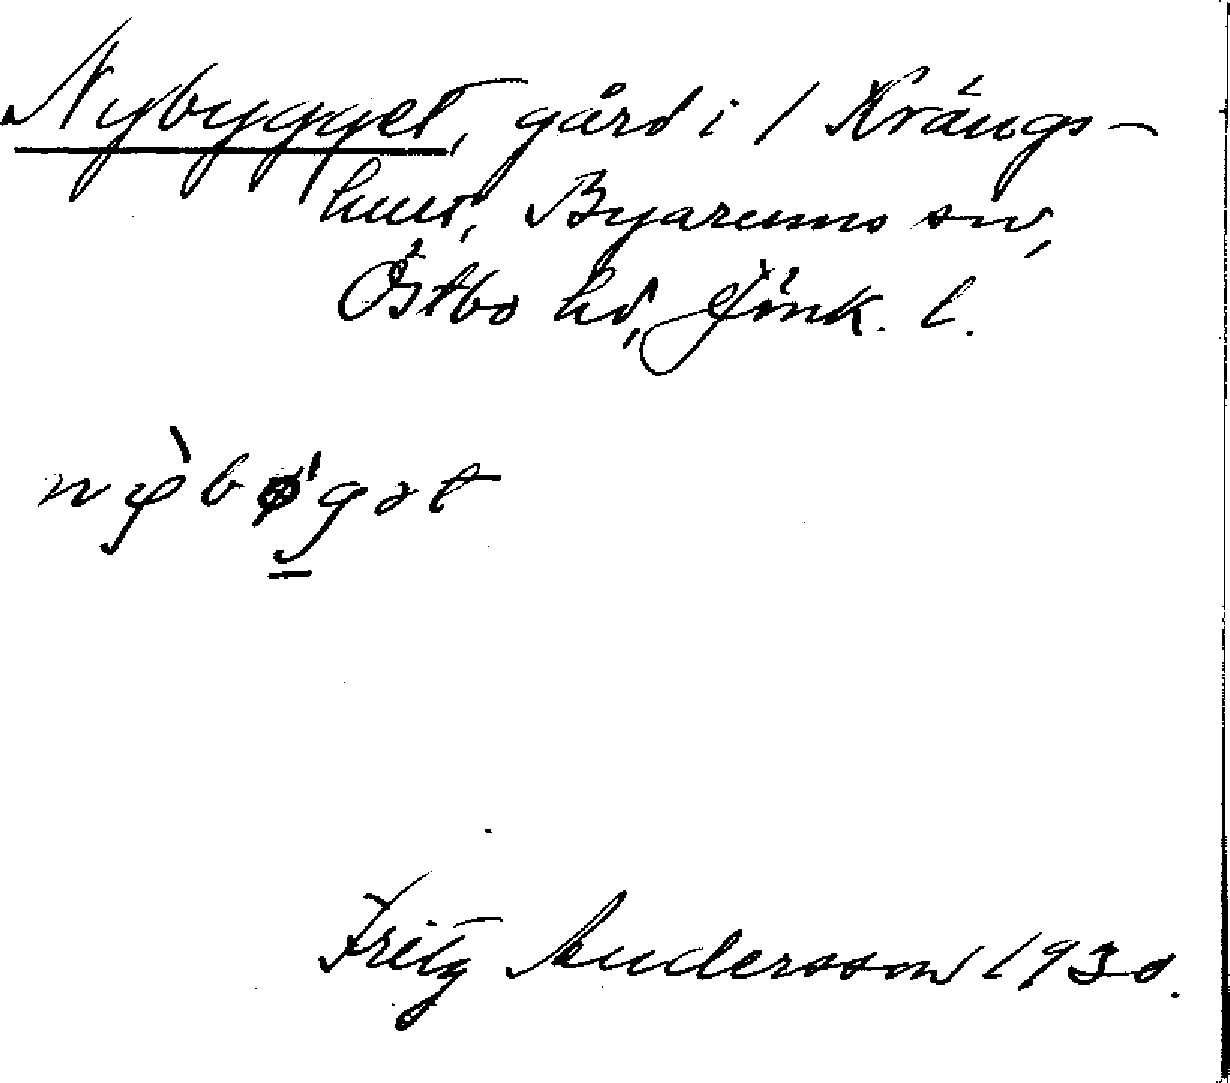 Nybygget, gård i 1 Krängs-
hult, Byarums sn,
Östbo hd, Jönk. l.
Fritz Andersson 1930.